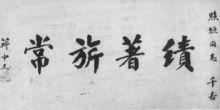 同志 千古
績著旂常
蔣中正